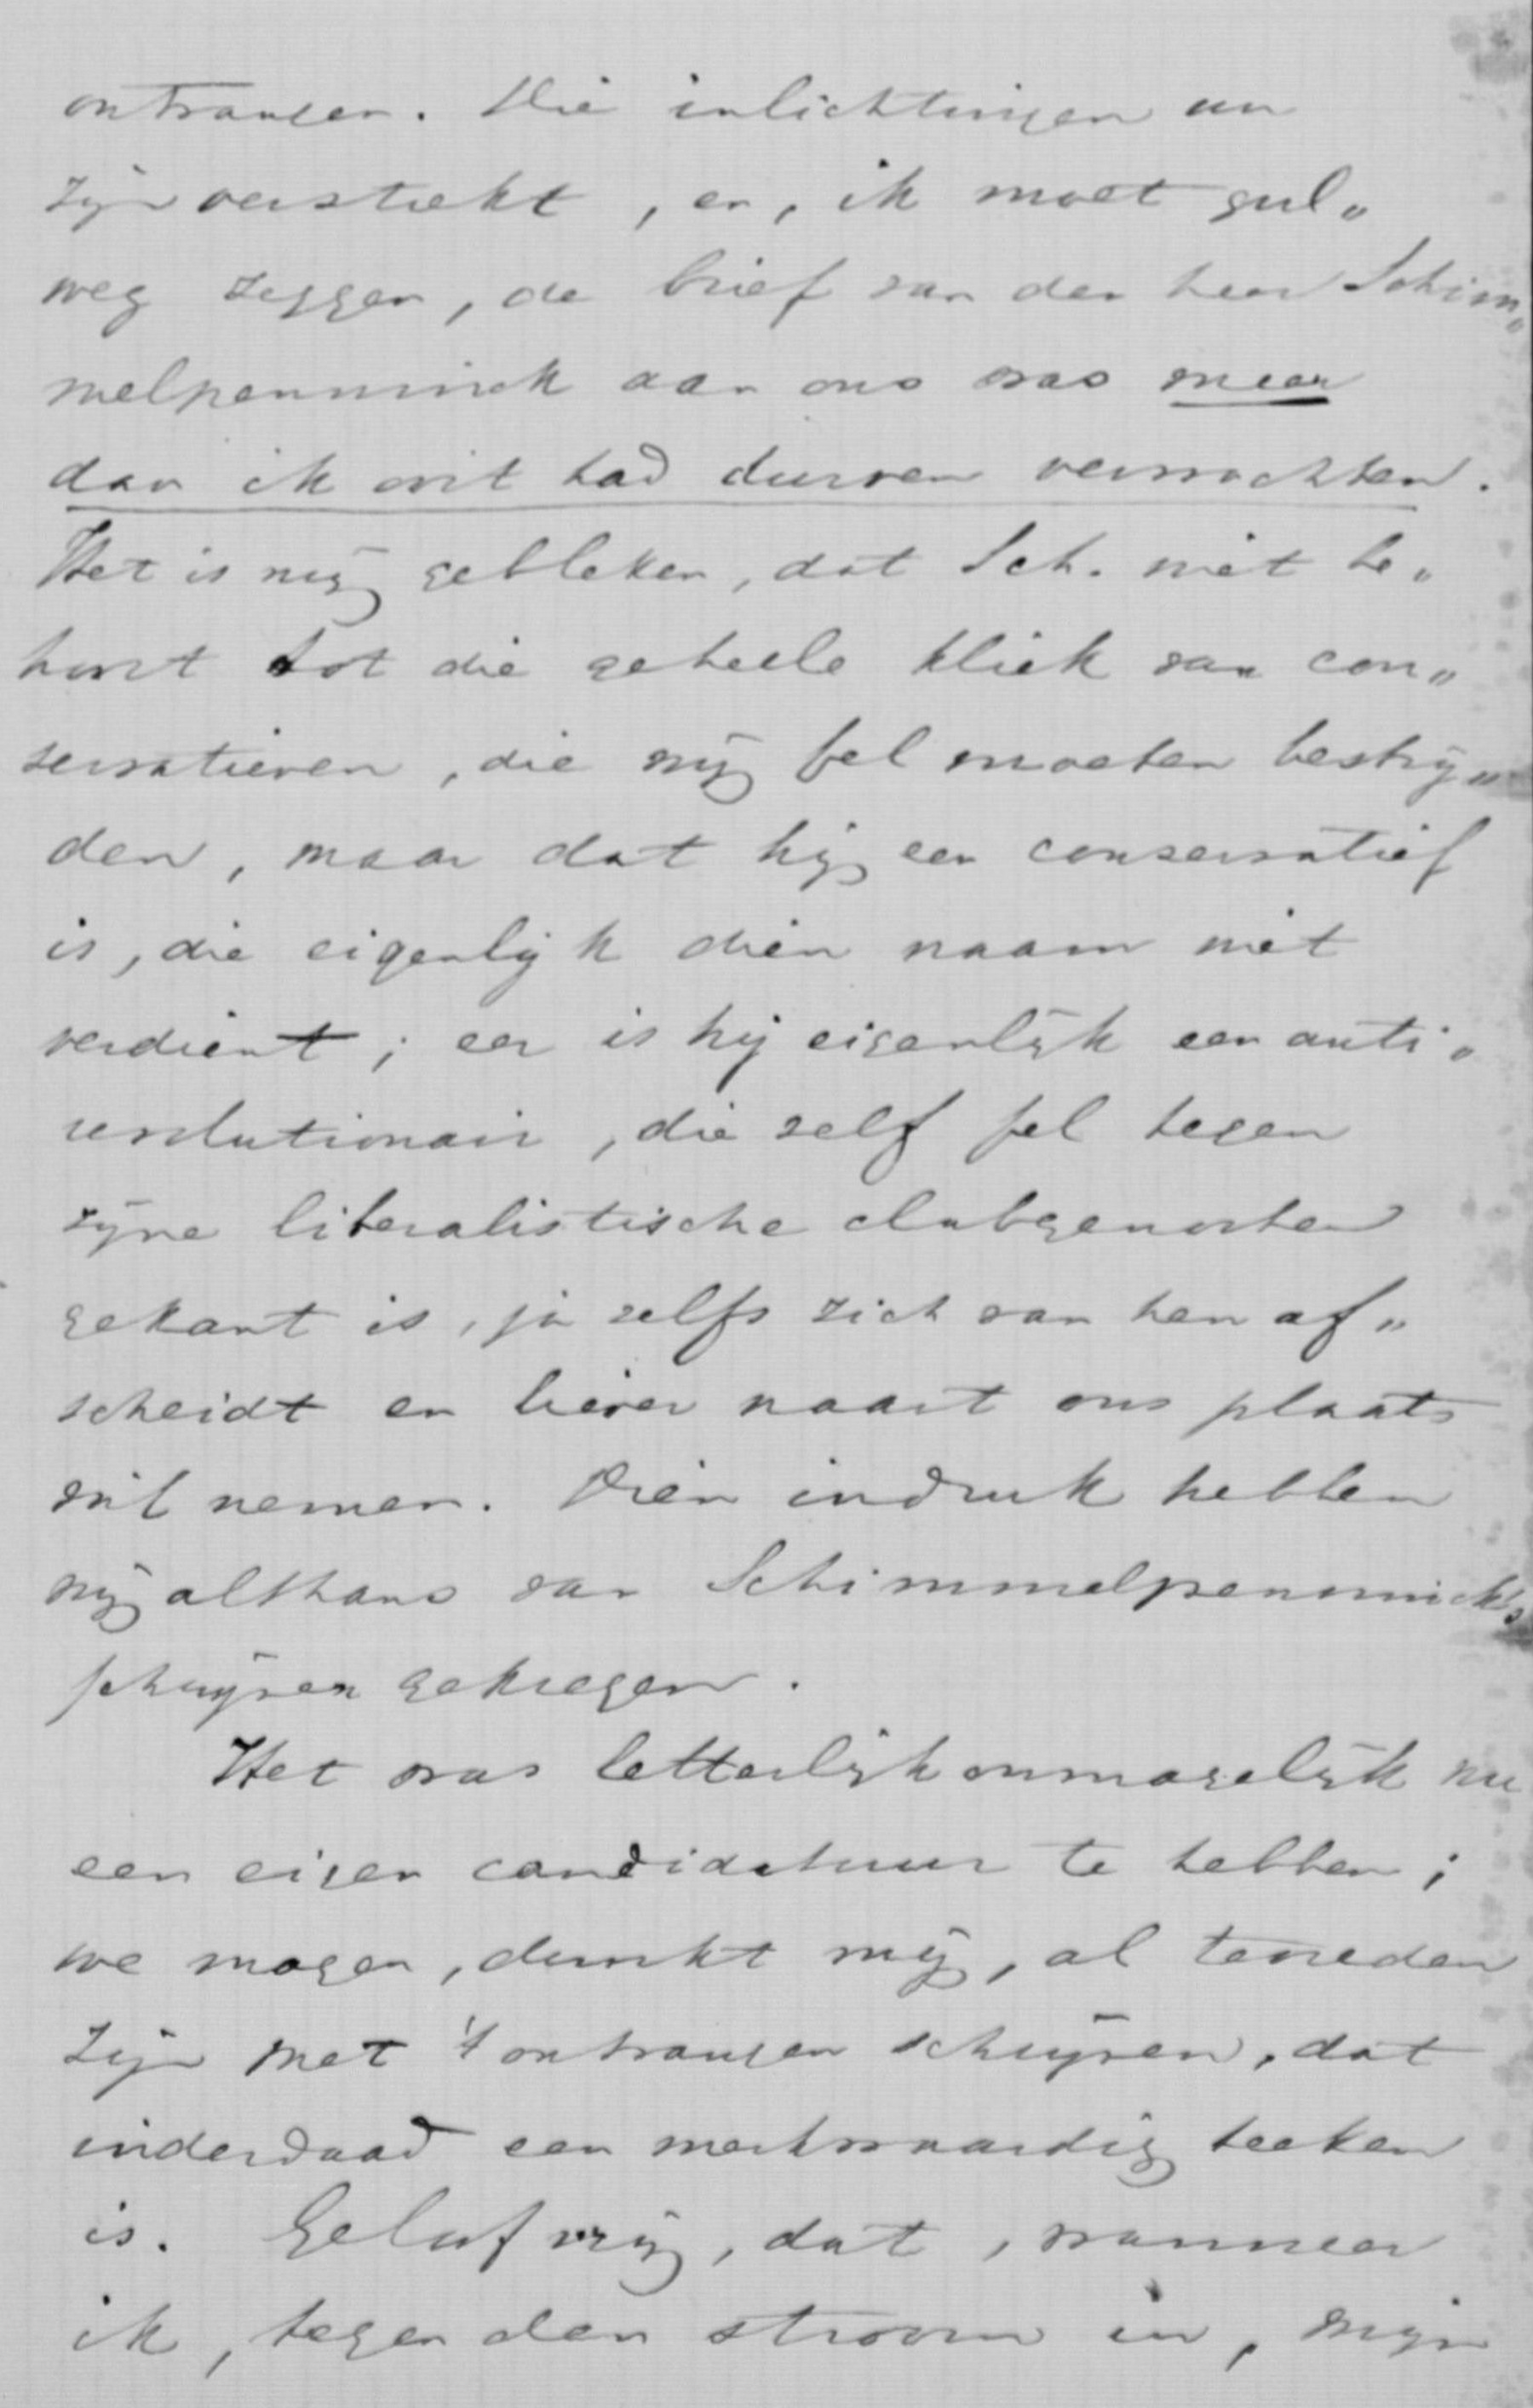 ontvangen. Die inlichtingen nu
zijn verstrekt, en, ik moet gul„
weg zeggen, de brief van den heer Schim„
melpenninck aan ons was meer
dan ik ooit had durven verwachten.
Het is mij gebleken, dat Sch. niet be„
hoort tot die geheele kliek van con„
servatieven, die wij fel moeten bestrij„
den, maar dat hij een conservatief
is, die eigenlijk dien naam niet
verdient; eer is hij eigenlijk een anti„
revolutionair, die zelf fel tegen
zijne liberalistische clubgenooten
gekant is, ja zelfs zich van hen af„
scheidt en liever naast ons plaats
wil nemen. Dien indruk hebben
wij althans van Schimmelpenninck's
schrijven gekregen.
Het was letterlijk onmogelijk nu
een eigen candidatuur te hebben;
we mogen, dunkt mij, al tevreden
zijn met 't ontvangen schrijven, dat
inderdaad een merkwaardig teeken
is. Geloof mij, dat, wanneer
ik, tegen den stroom in, mijn